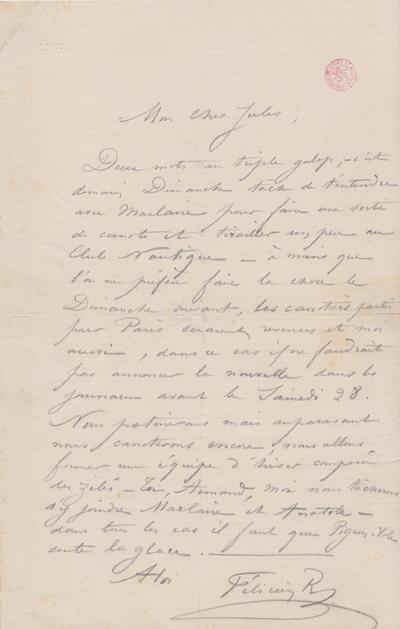 Mon cher Jules,
Deux mots au triple galop, - c'est
demain Dimanche tâche de t'entendre
avec Marlaire pour faire une sortie
de canots et tirailler un peu au
Club Nautique - à moins que
l'on ne préfère faire la chose le
Dimanche suivant, les canotiers partis
pour Paris seraient revenus et moi
aussi, dans ce cas il ne faudrait
pas annoncer la nouvelle dans les
journaux avant le Samedi 28.
Nous patinerons mais auparavant
nous canoterons encore, nous allons
former une équipe d'hiver composée
des zélés - Toi, Armand, moi nous tâcherons
d'y joindre Marlaire et Anatole -
dans tous les cas il faut que
sente la glace.
A toi
Félicien R